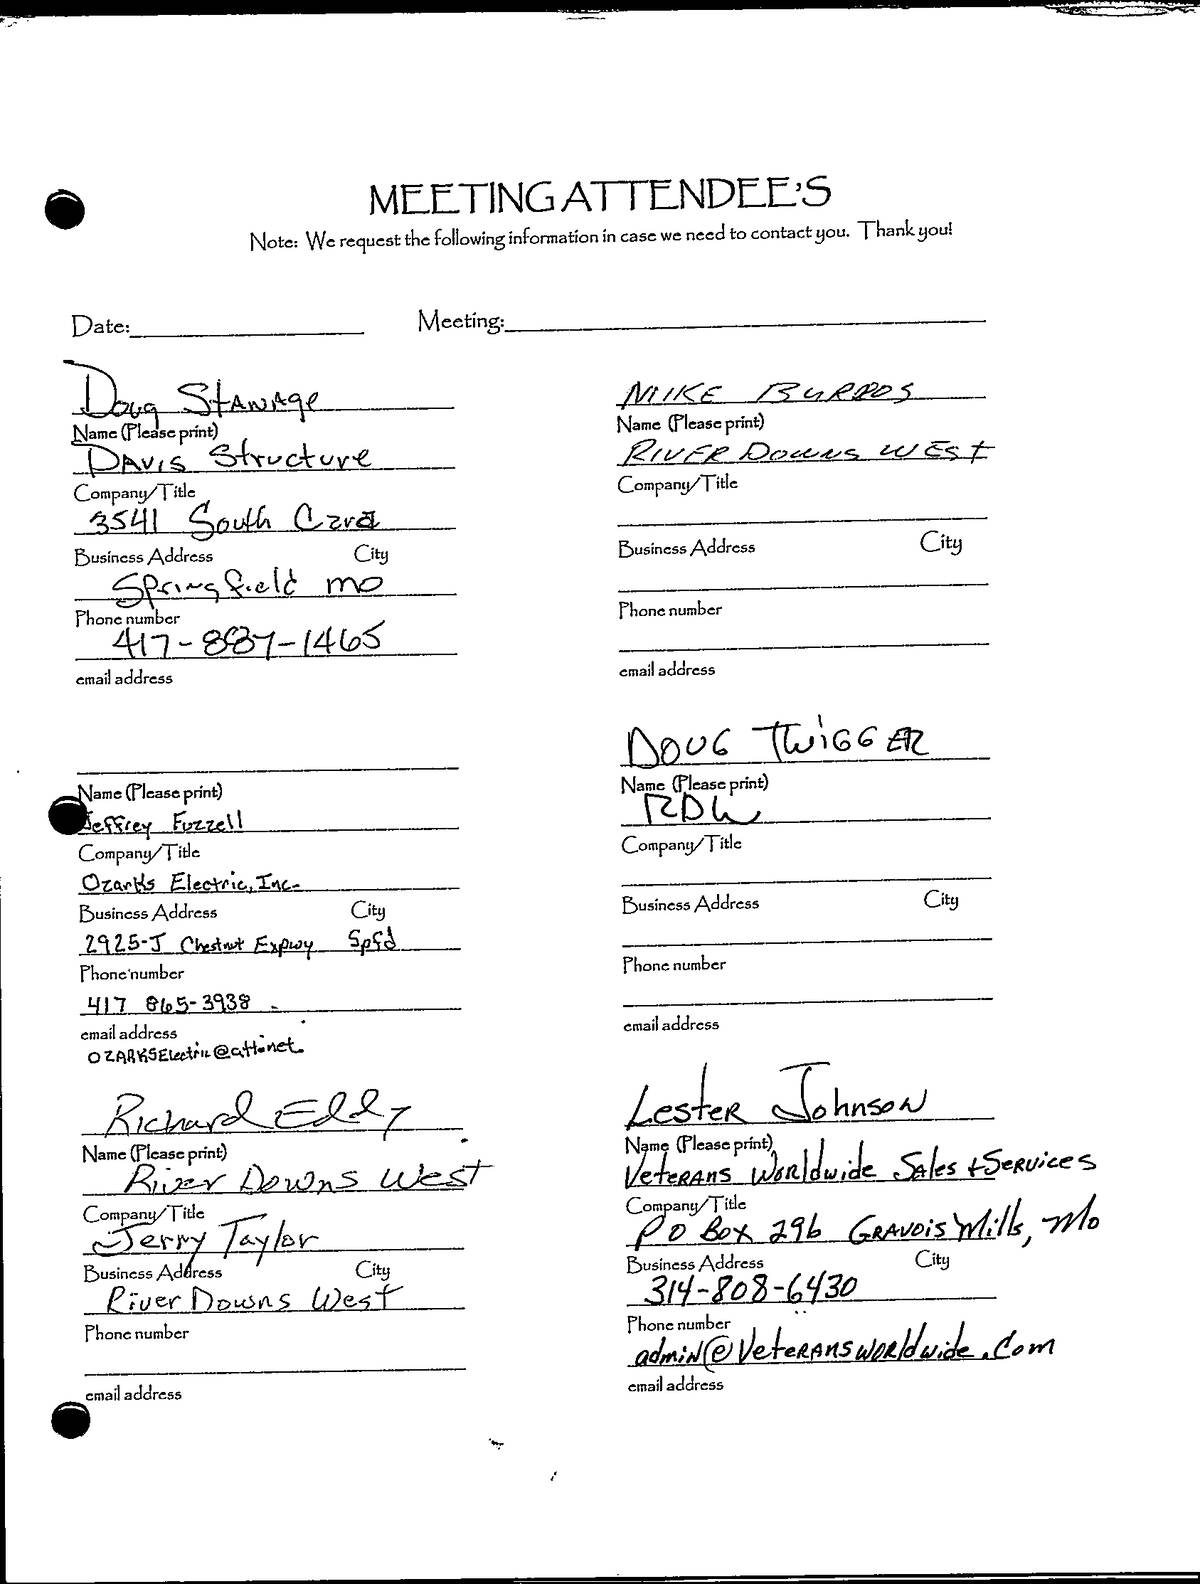 MEETING ATTENDEE'S
Note: We request the following information in case we need to contact you. Thank you!
Date: Meeting:
Doug Stanage
Name (Please print)
Davis Structure
Company/Title
3541 South
Business Address City
Springfield mo
Phone number
417-887-1465
email address
Name (Please print)
Jeffrey Fuzzell
Company/Title
Ozarks Electric, Inc.
Business Address City
2925-J Chestnut Expwy Spfd
Phone number
417 865-3938
email address
OZARKSElectric@att.net
Richard Eddy
Name (Please print)
River Downs West
Company/Title
Jerry Taylor
Business Address City
River Downs West
Phone number
email address
MIKE
Name (Please print)
RIVER DOWNS WEST
Company/Title
Business Address City
Phone number
email address
DOUG TWIGGER
Name (Please print)
RDW
Company/Title
Business Address City
Phone number
email address
Lester Johnson
Name (Please print)
Veterans Worldwide Sales + Services
Company/Title
PO Box 296 Gravois Mills, Mo
Business Address City
314-808-6430
Phone number
admin@Veteransworldwide.com
email address